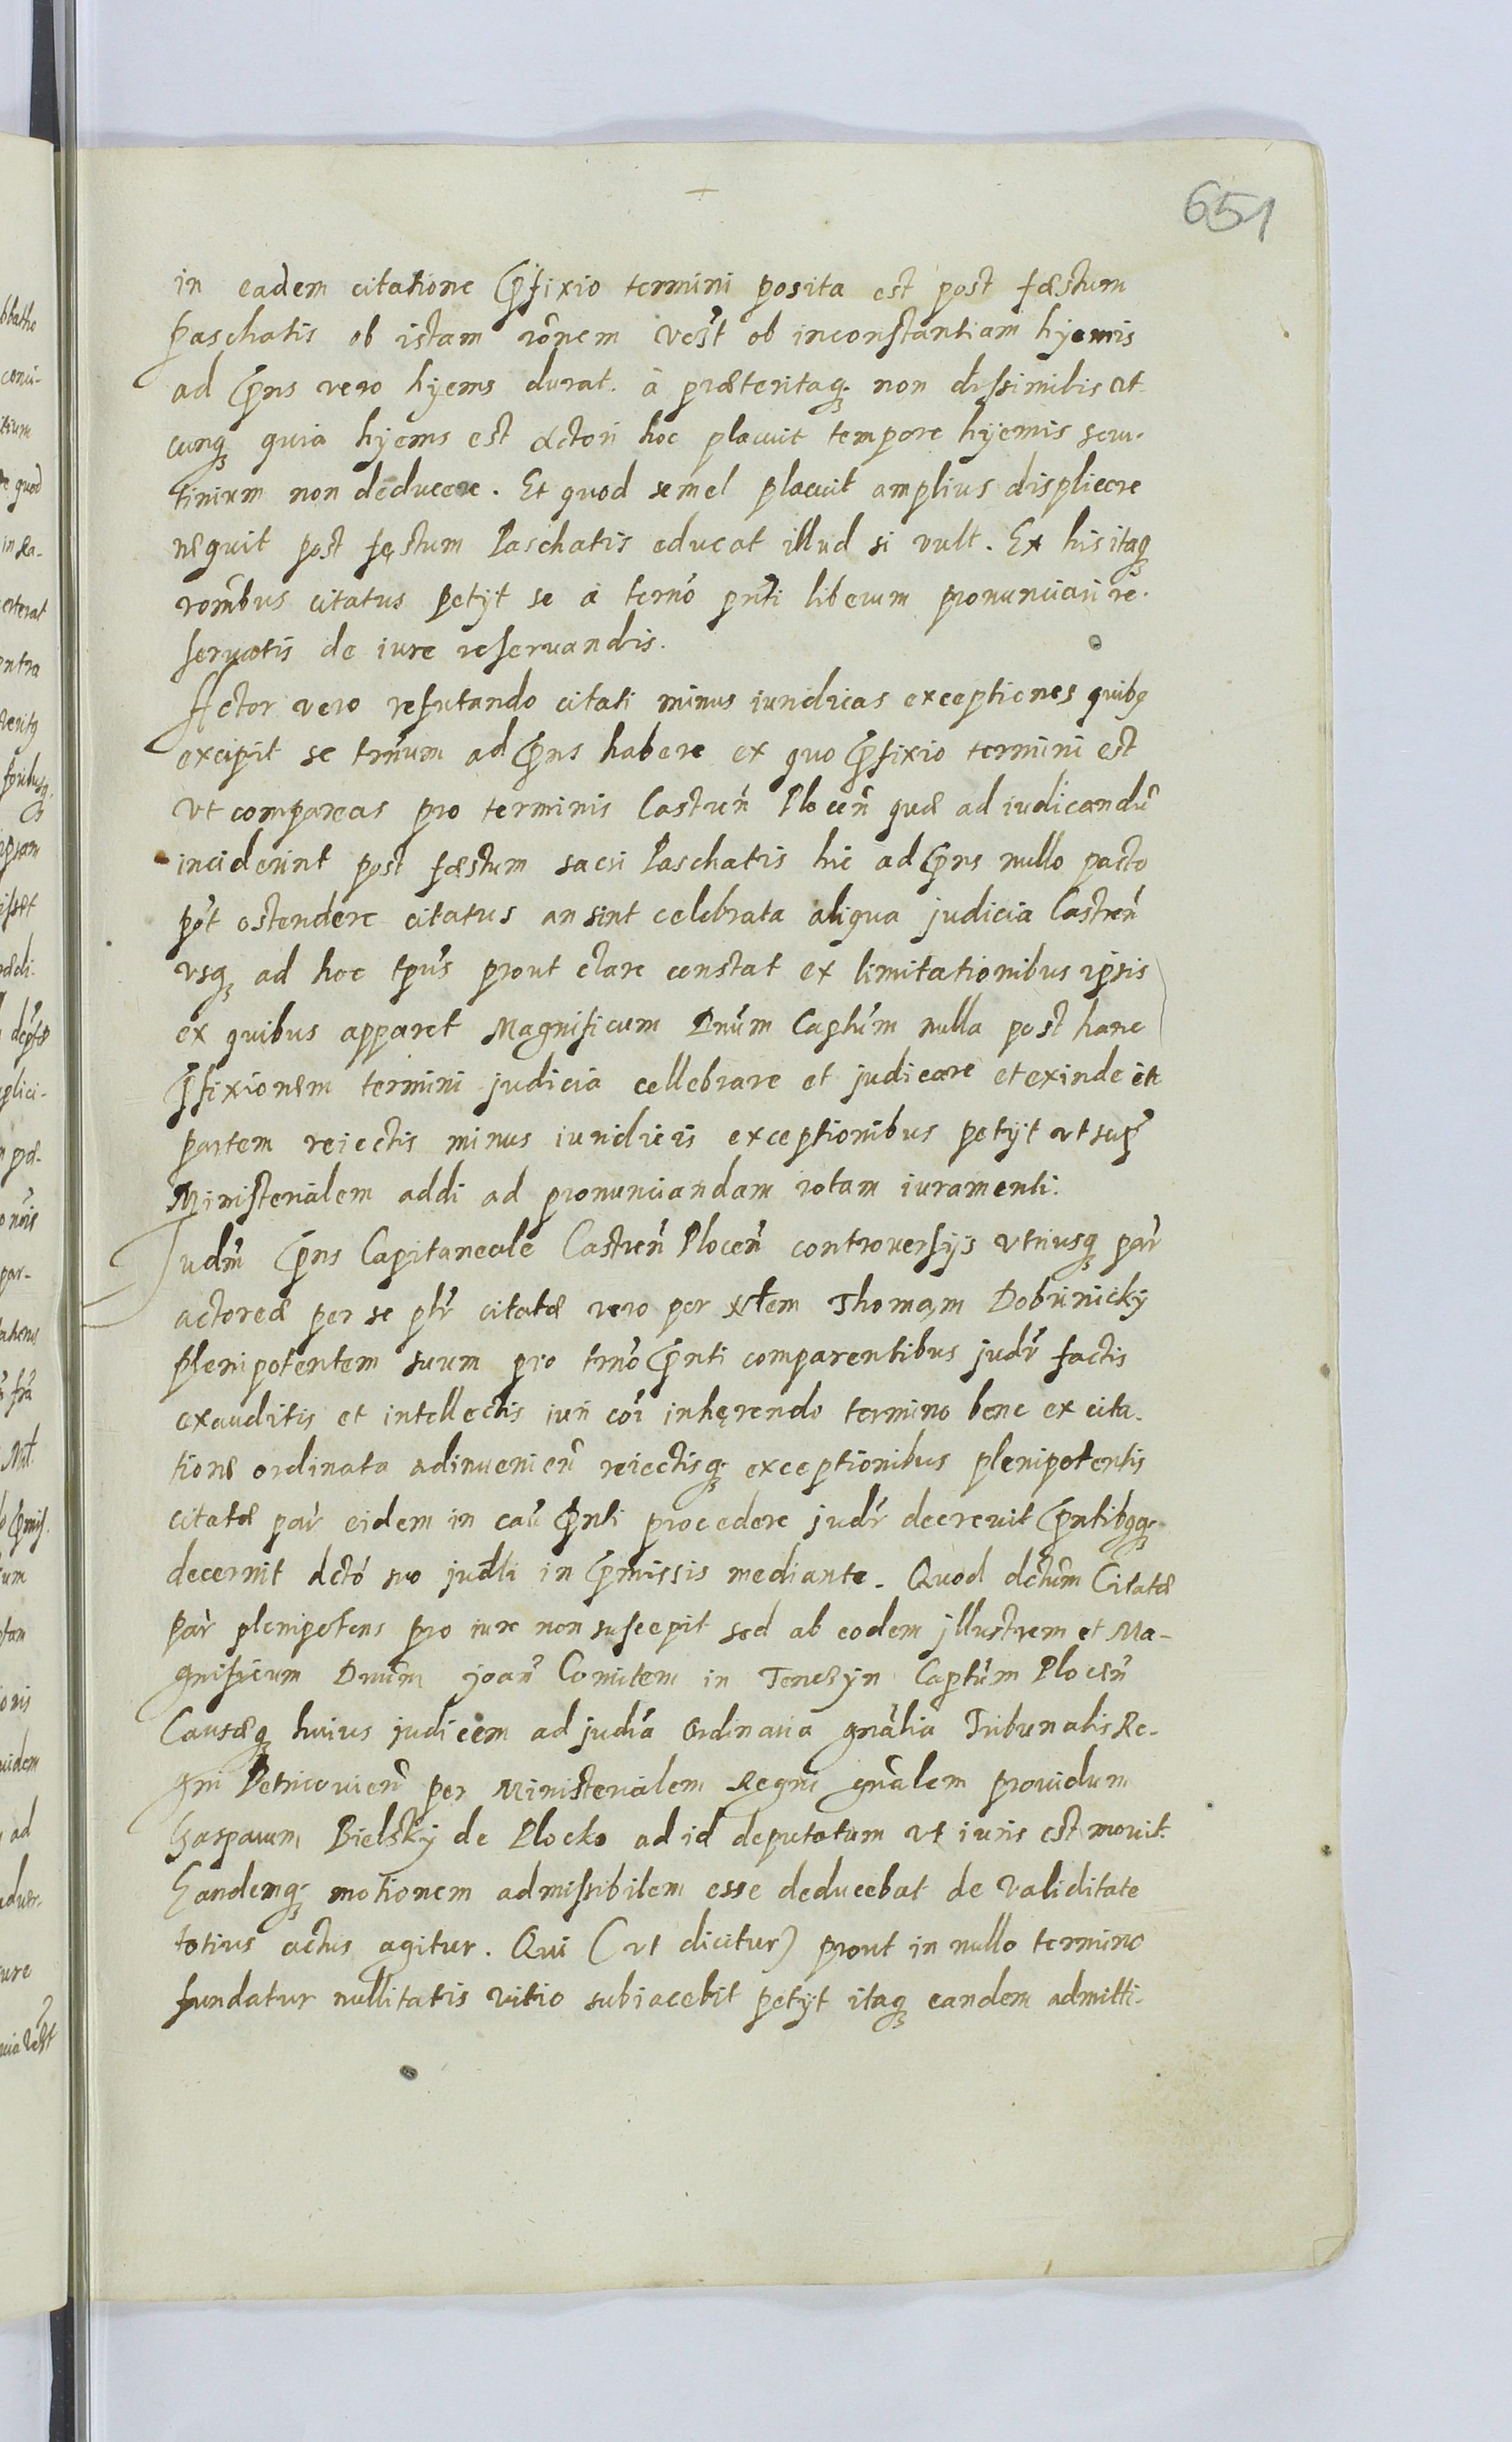 651
in eadem citatione p̄fixio termini posita est post fæstum
Paschatis ob istam rõnem ob inconstantiam hyemis
ad p̄ns vero hyems durat. à præteritaq; non dissimilis ut
cunq; quia hyems est actori hoc placuit tempore hyemis scru-
tinium non deducere. Et quod semel placuit amplius displicere
nequit post fęstum Paschatis educat illud si vult. Ex his itaq;
rõnibus citatus petÿt se à termõ pñti liberum pronunciari re-
seruatis de iure reseruandis.
Actor vero refutando citati minus iuridicas exceptiones quibq
excipit se trm̃num ad p̄ns habere ex quo p̄fixio termini est
vt compareas pro terminis Castreñ Ploceñ quæ ad iudicandũ
inciderint post fæstum sacri Paschatis hic ad p̄ns nullo pacto
põt ostendere citatus an sint celebrata aliqua judicia Castreñ
vsq; ad hoc tp̃us prout clare constat ex limitationibus ipsis
ex quibus apparet Magnificum Dnũm Captũm nulla post hanc
p̄fixionem termini judicia cellebrare et judicare et exinde
partem reiectis minus iuridicis exceptionibus petÿt vt sup̃
Ministerialem addi ad pronunciandam rotam iuramenti.
Judm̃ p̄ns Capitaneale Castreñ Ploceñ controuersÿs vtriusq; par̃
actoreæ per se citatæ vero per Thomam Dobrinickÿ
plenipotentem suum pro trm̃o p̄nti comparentibus judr̃ factis
exauditis et intellectis iuri cõi inhęrendo termino bene ex cita-
tione ordinata adinuenieñ reiectisq; exceptionibus plenipotentis
citatæ par̃ eidem in caũ p̄nti procedere judr̃ decreuit p̄ntibqq;
decernit dctõ suo judli in p̄missis mediante. Quod dctũm Citatæ
par̃ plenipotens pro iure non suscepit sed ab eodem jllustrem et Ma-
gnificum Dnũm joañ Comitem in Tenczÿn Captũm Ploceñ
Causæq; huius judicem ad judĩa Ordinaria gnãlia Tribunalis Re-
gni Petricouieñ per Ministerialem Regni gnãlem prouidum
Gasparum Bielskÿ de Plocko ad id deputatum vt iuris est mouit.
Eandemq; motionem admissibilem esse deducebat de validitate
totius actus agitur. Qui (vt dicitur) prout in nullo termino
fundatur nullitatis vitio subiacebit petÿt itaq; eandem admitti-